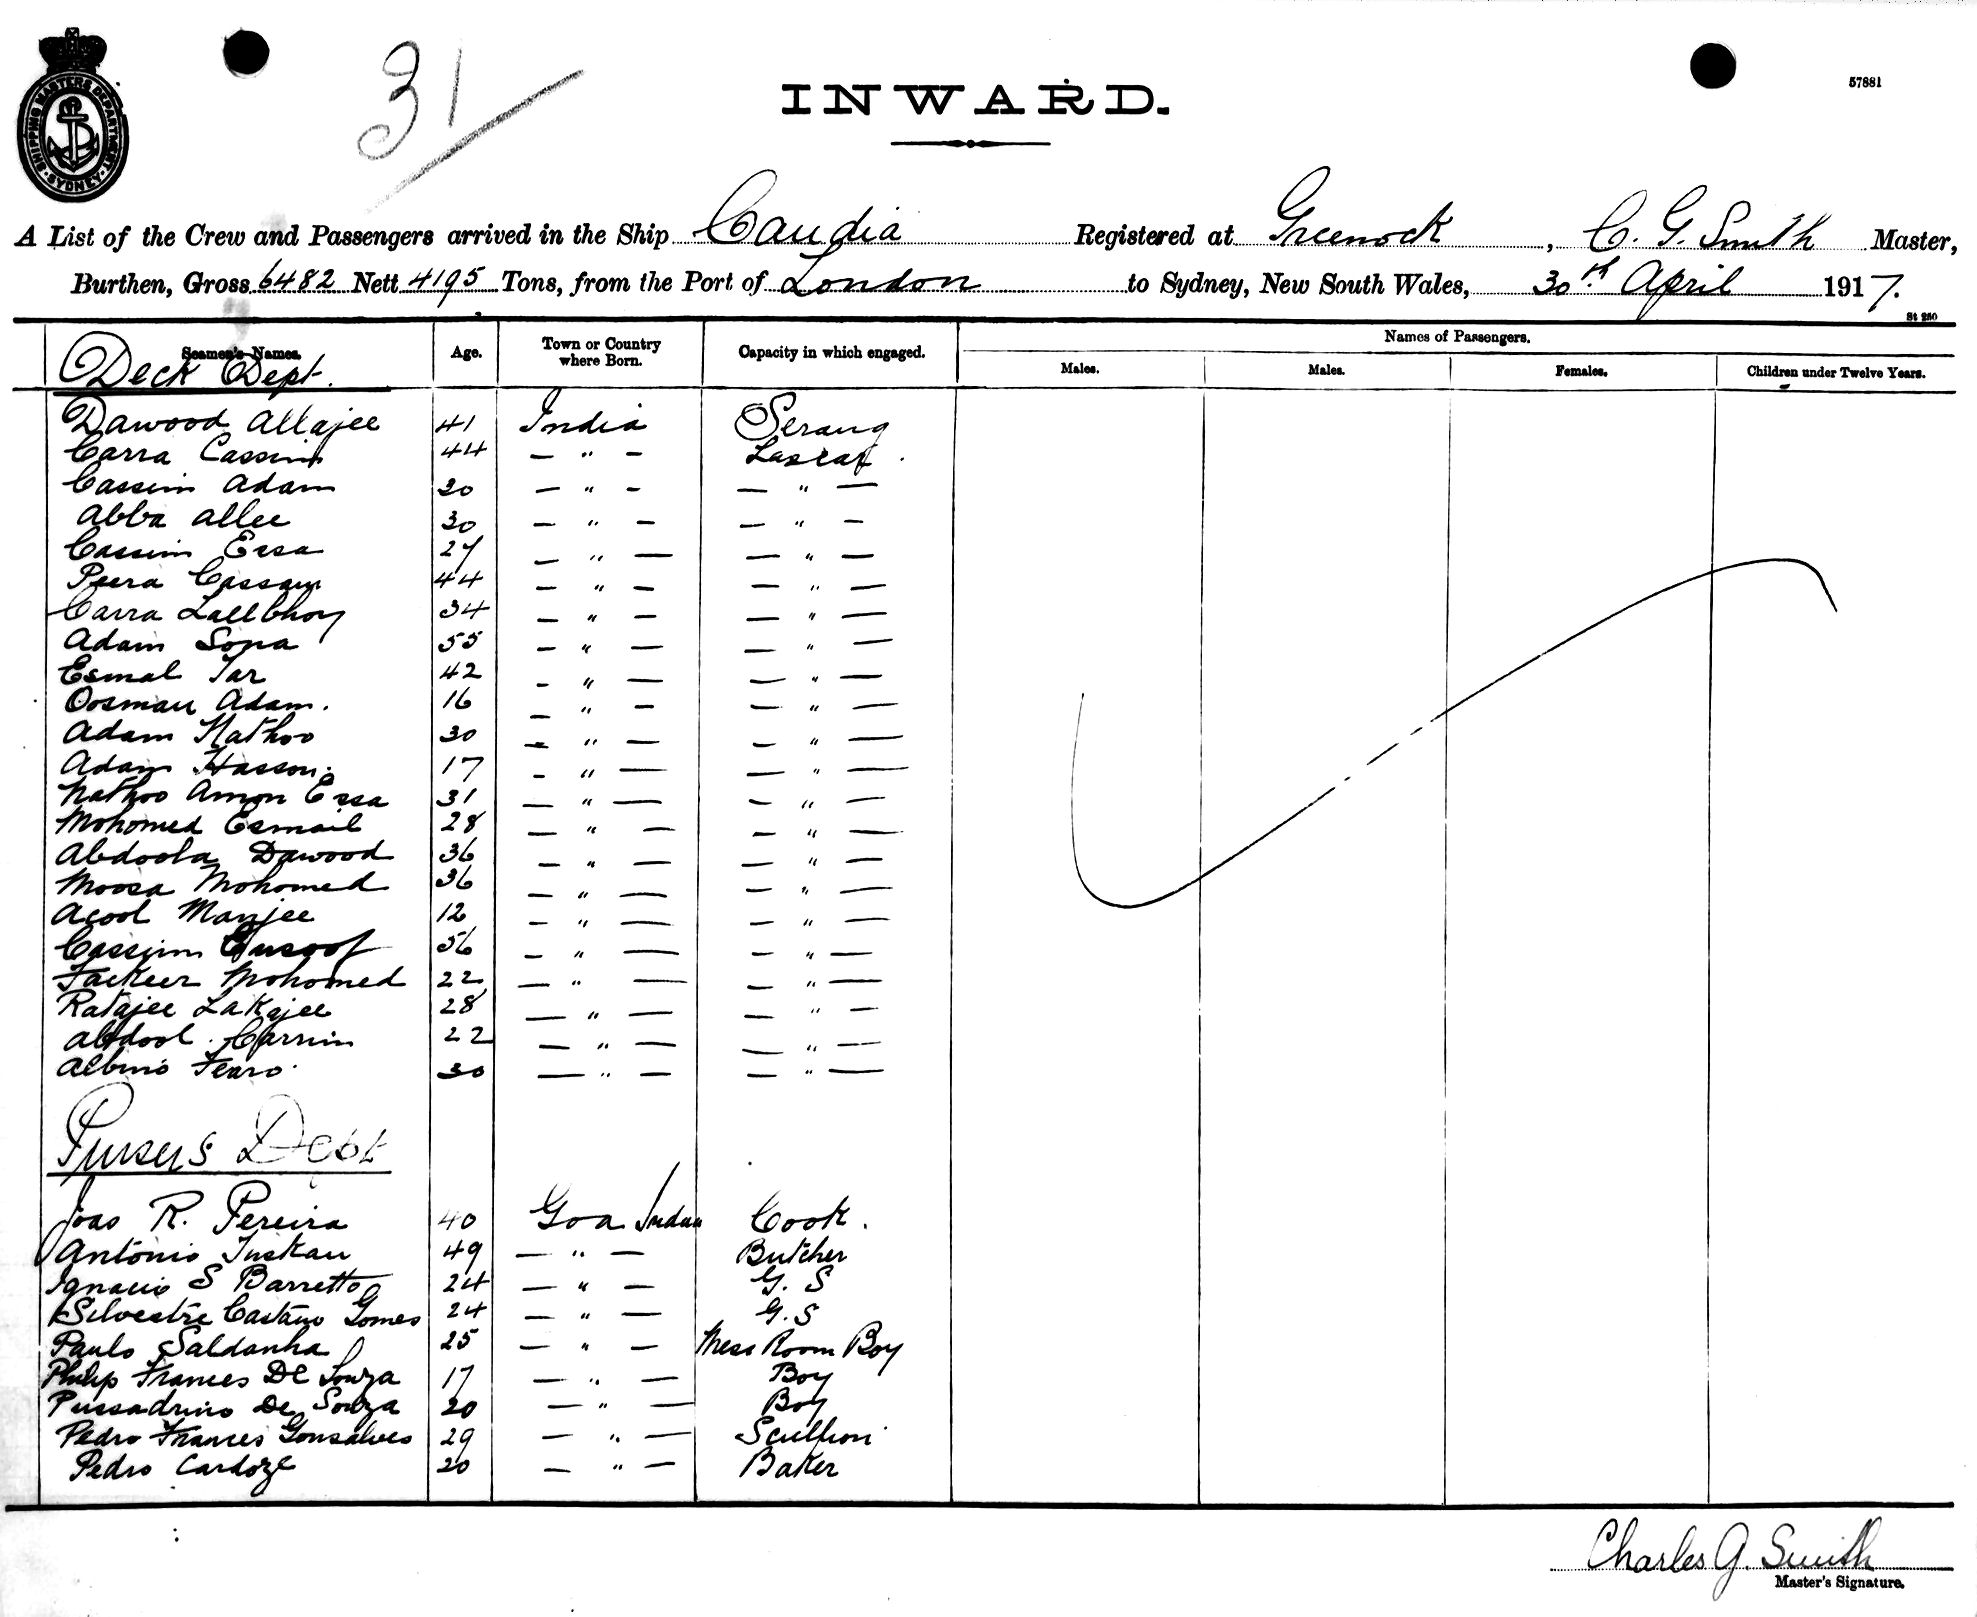 31
INWARD.
57881
SHIPPING MASTERS DEPARTMENT SYDNEY
A List of the Crew and Passengers arrived in the Ship Candia Registered at Greenock, C. G. Smith Master,
Burthen, Gross 6482 Nett 4195 Tons, from the Port of London to Sydney, New South Wales, 30th April 1917.
St 250
Seamen's Names. Age. Town or Country where Born. Capacity in which engaged. Names of Passengers.
Males. Males. Females. Children under Twelve Years.
Deck Dept.
Dawood Allajee 41 India Serang
Carra Cassim 44 — " — Lascar
Cassim Adam 30 — " — — " —
Abba Allee 30 — " — — " —
Cassim Essa 27 — " — — " —
Peera Cassam 44 — " — — " —
Carra Lallbhoy 34 — " — — " —
Adam Sopa 55 — " — — " —
Esmal Tar 42 — " — — " —
Oosman Adam. 16 — " — — " —
Adam Nathoo 30 — " — — " —
Adam Hasson. 17 — " — — " —
Nathoo Amon Essa 31 — " — — " —
Mohomed Esmail 28 — " — — " —
Abdoola Dawood 36 — " — — " —
Moosa Mohomed 36 — " — — " —
Acool Manjee 12 — " — — " —
Cassim Eusoof 56 — " — — " —
Fackeer Mohomed 22 — " — — " —
Ratajee Lakajee 28 — " — — " —
Abdool Carrim 22 — " — — " —
Albino Fearo 30 — " — — " —
Pursers Dept
Joao R. Pereira 40 Goa India Cook.
Antonio Tuskau 49 — " — Butcher
Ignacio S Barretto 24 — " — G. S
Silvestre Castano Gomes 24 — " — G. S
Paulo Saldanha 25 — " — Mess Room Boy
Philip Frances De Souza 17 — " — Boy
Pussadrino De Souza 20 — " — Boy
Pedro Frances Gonsalves 29 — " — Scullion
Pedro Cardoze 20 — " — Baker
Charles G. Smith
Master's Signature.